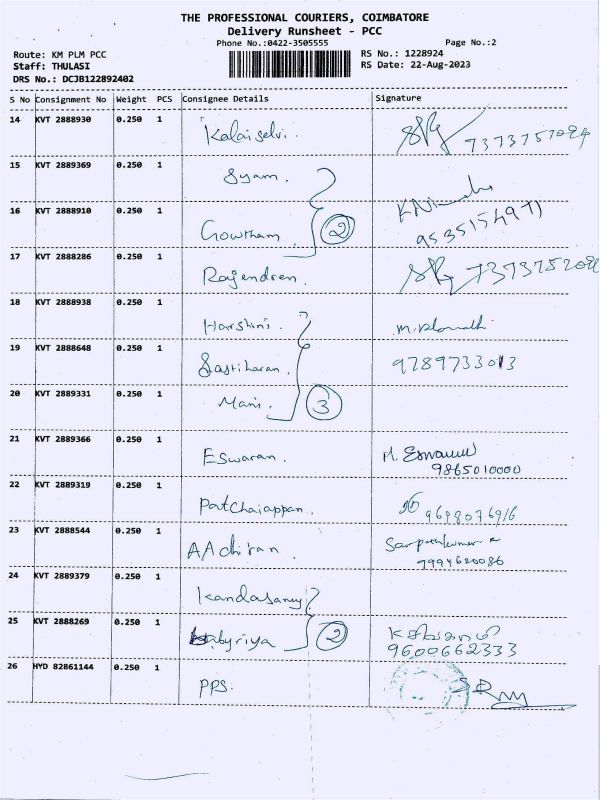 THE PROFESSIONAL COURIERS, COIMBATORE
Delivery Runsheet - PCC
Phone No.:0422-3505555 Page No.:2
Route: KM PLM PCC RS No.: 1228924
Staff: THULASI RS Date: 22-Aug-2023
DRS No.: DCJB122892402
S No Consignment No Weight PCS Consignee Details Signature
14 KVT 2888930 0.250 1 Kalaiselvi.
15 KVT 2889369 0.250 1 Syam.
16 KVT 2888910 0.250 1 Gowtham. 2
17 KVT 2888286 0.250 1 Rajendren.
18 KVT 2888938 0.250 1 Harshini.
19 KVT 2888648 0.250 1 Sastiharan. 9789733013
20 KVT 2889331 0.250 1 Mani. 3
21 KVT 2889366 0.250 1 Eswaran. M. Eswaran
9865010000
22 KVT 2889319 0.250 1 Patchaiappan. 9698076916
23 KVT 2888544 0.250 1 AAdhiran. Sarpathkumar R
7994620086
24 KVT 2889379 0.250 1 Kandasamy
25 KVT 2888269 0.250 1 2
9600662333
26 HYD 82861144 0.250 1 PPS.